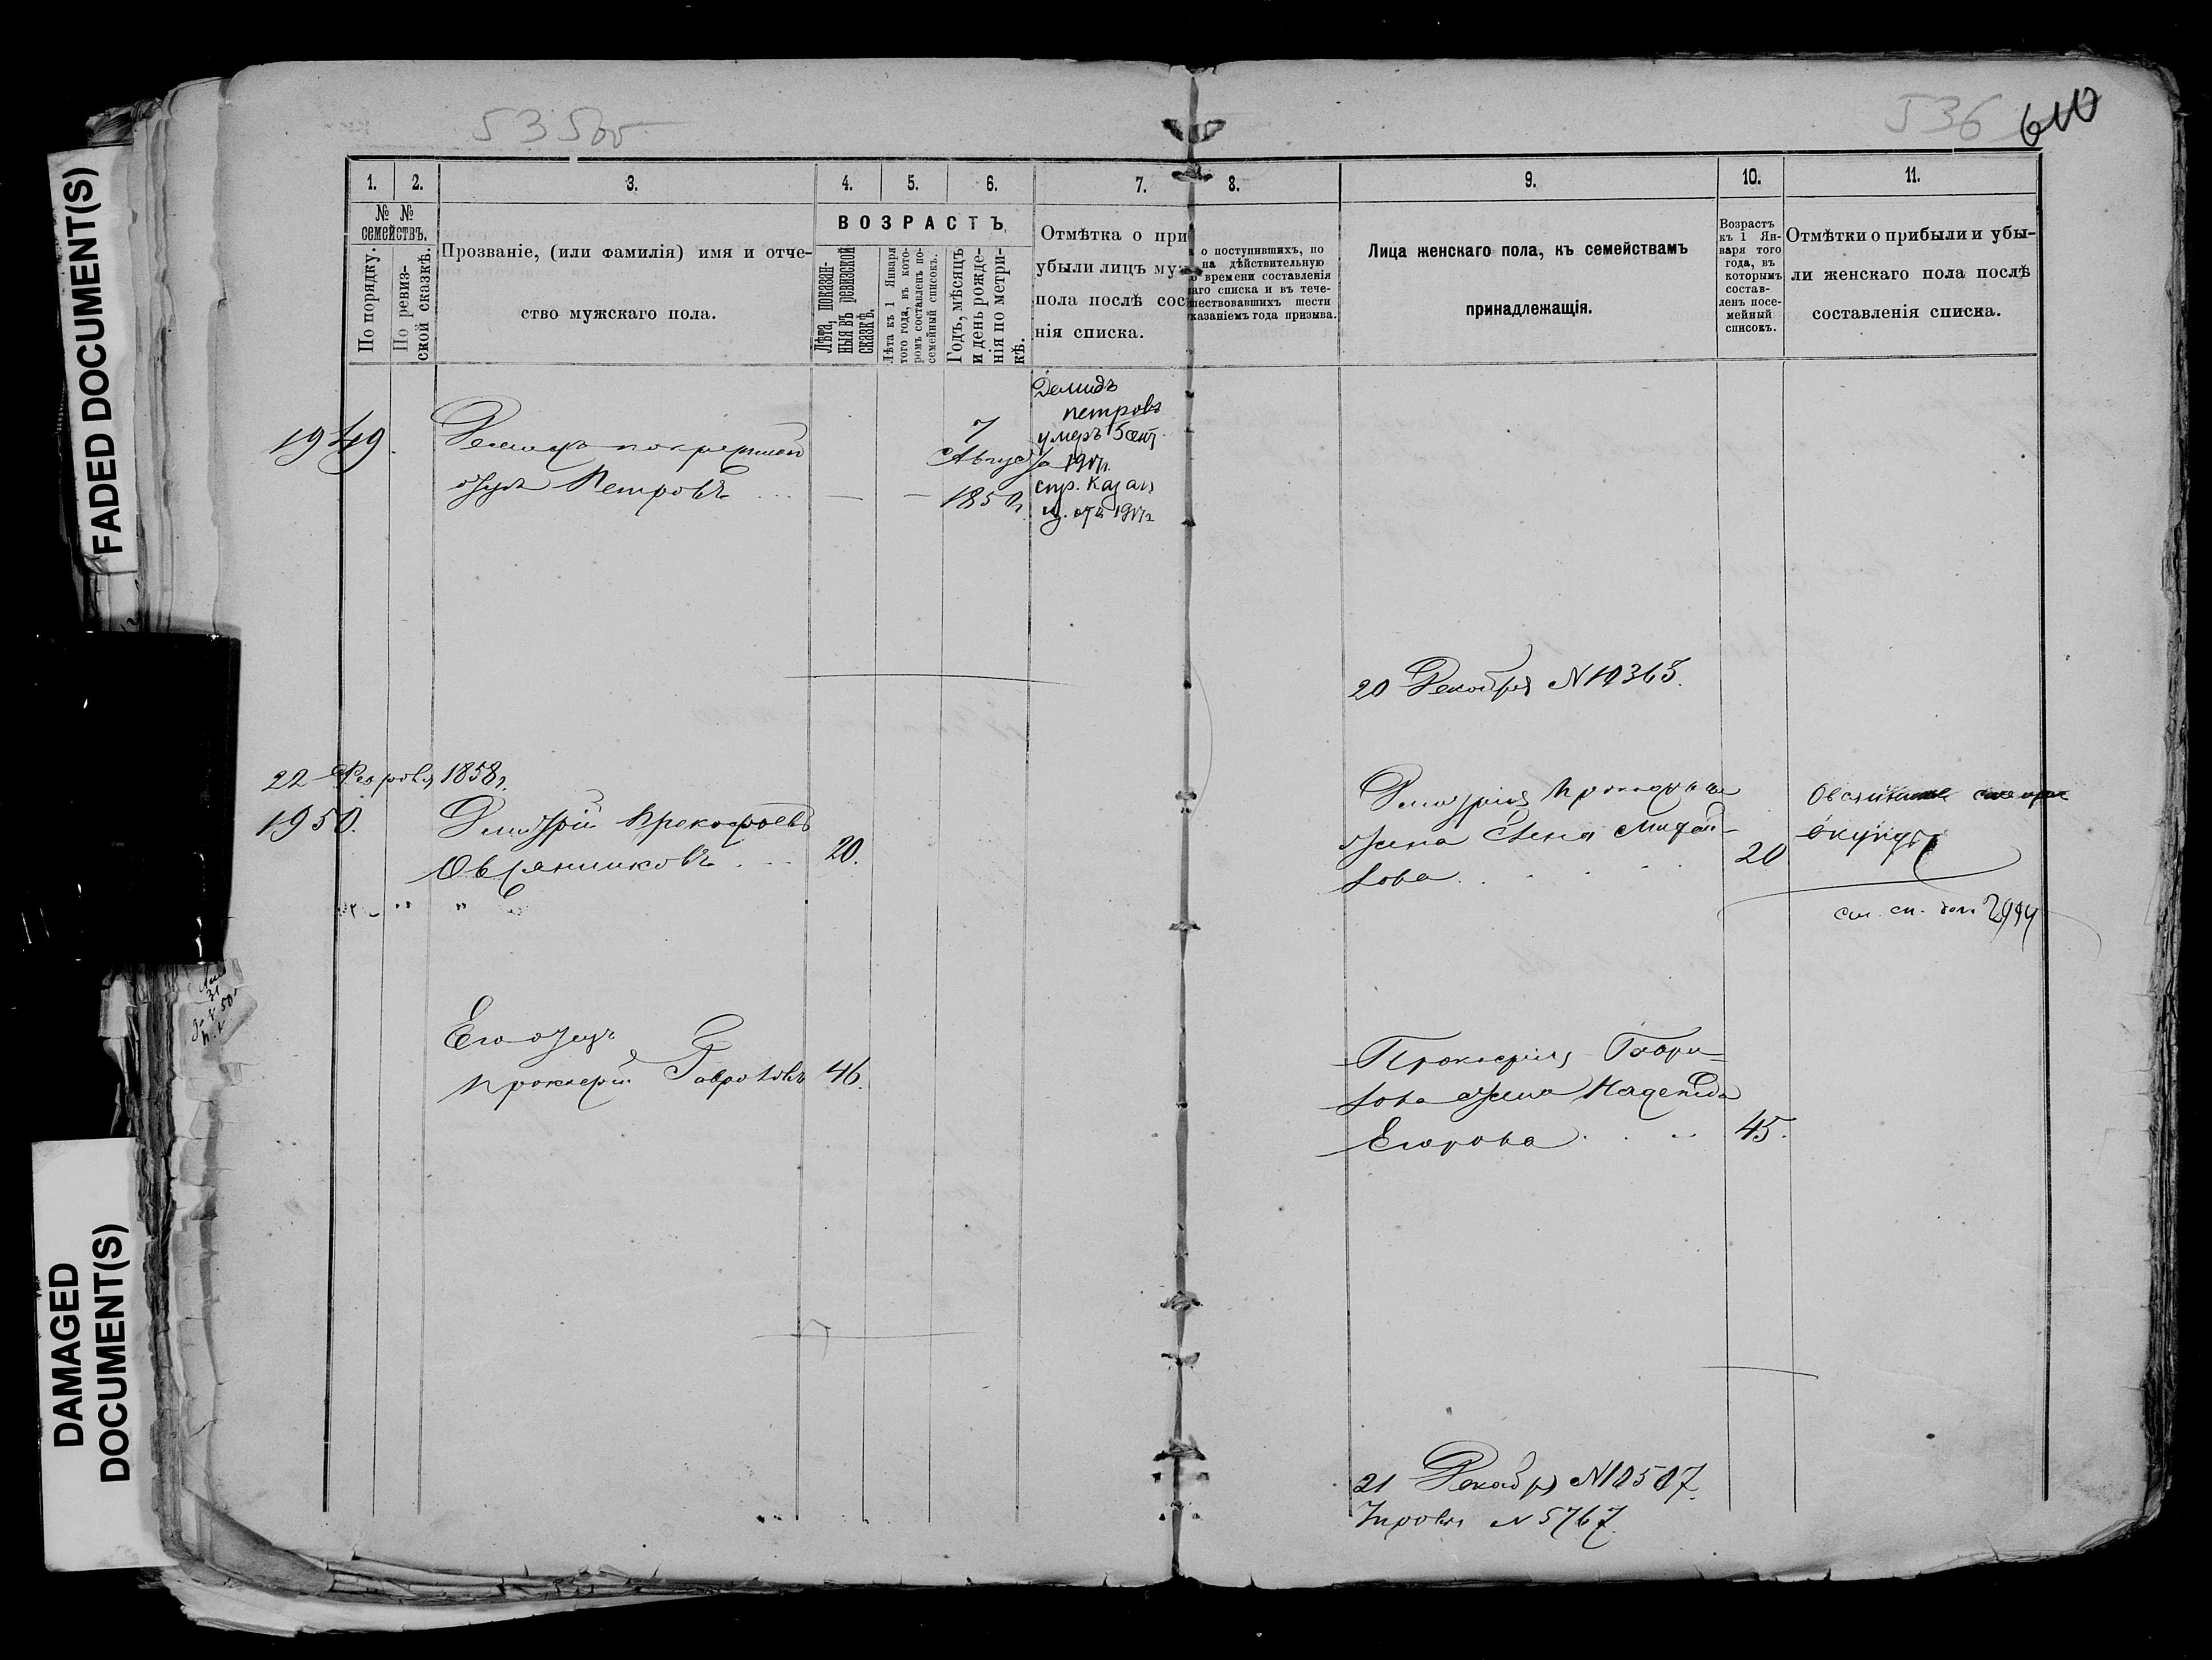 FADED DOCUMENT(S)
DAMAGED
DOCUMENT(S)
535об
536 610
1. 2. 3. 4. 5. 6. 7. 8. 9. 10. 11.
№ №
семействъ.
По порядку.
По ревиз-
ской сказкѣ.
Прозваніе, (или фамилія) имя и отче-
ство мужскаго пола.
ВОЗРАСТЪ
Лѣта, показан-
ныя въ ревизской
сказкѣ.
Лѣта къ 1 Января
того года, въ кото-
ромъ составленъ по-
семейный списокъ.
Годъ, мѣсяцъ
и день рожде-
нія по метри-
кѣ.
Отмѣтка о при
убыли лицъ му
пола послѣ сос
нія списка.
о поступившихъ, по
на дѣйствительную
времени составленія
аго списка и въ тече-
шествовавшихъ шести
казаніемъ года призыва.
Лица женскаго пола, къ семействамъ
принадлежащія.
Возрастъ
къ 1 Ян-
варя того
года, въ
которымъ
состав-
ленъ посе-
мейный
списокъ.
Отмѣтки о прибыли и убы-
ли женскаго пола послѣ
составленія списка.
1949
Демидъ по крестном
отцѣ Петровъ
7
Августа
1850г.
Демидъ
петровъ
умеръ 5 сент.
190
спр. Казан
20 Декабря N 10365.
22 Февраля 1858г.
1950.
Дмитрій Прокофьевъ
Овсянниковъ 20.
Дмитрія Прокофьева
жена Михай-
лова 20
окунд
см. сп.
Его отецъ
Прокофій Гавриловъ 46.
Прокофія Гаври-
лова жена Надежда
Егорова 45.
21 Декабря N 10507.
N 5767.